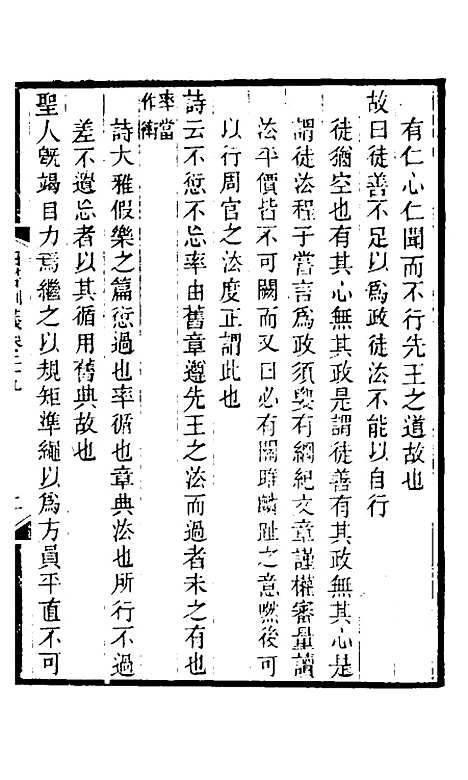 有仁心仁聞而不行先王之道故也
故曰徒善不足以為政徒法不能以自行
徒猶空也有其心無其政是謂徒善有其政無其心是
謂徒法程子嘗言為政須要有綱紀文章謹權審量讀
法平價皆不可闕而又曰必有關雎麟趾之意然後可
以行周官之法度正謂此也
詩云不愆不忘率由舊章遵先王之法而過者未之有也
率當
作衛
詩大雅假樂之篇愆過也率循也章典法也所行不過
差不遺忘者以其循用舊典故也
聖人既竭目力焉繼之以規矩準繩以為方員平直不可